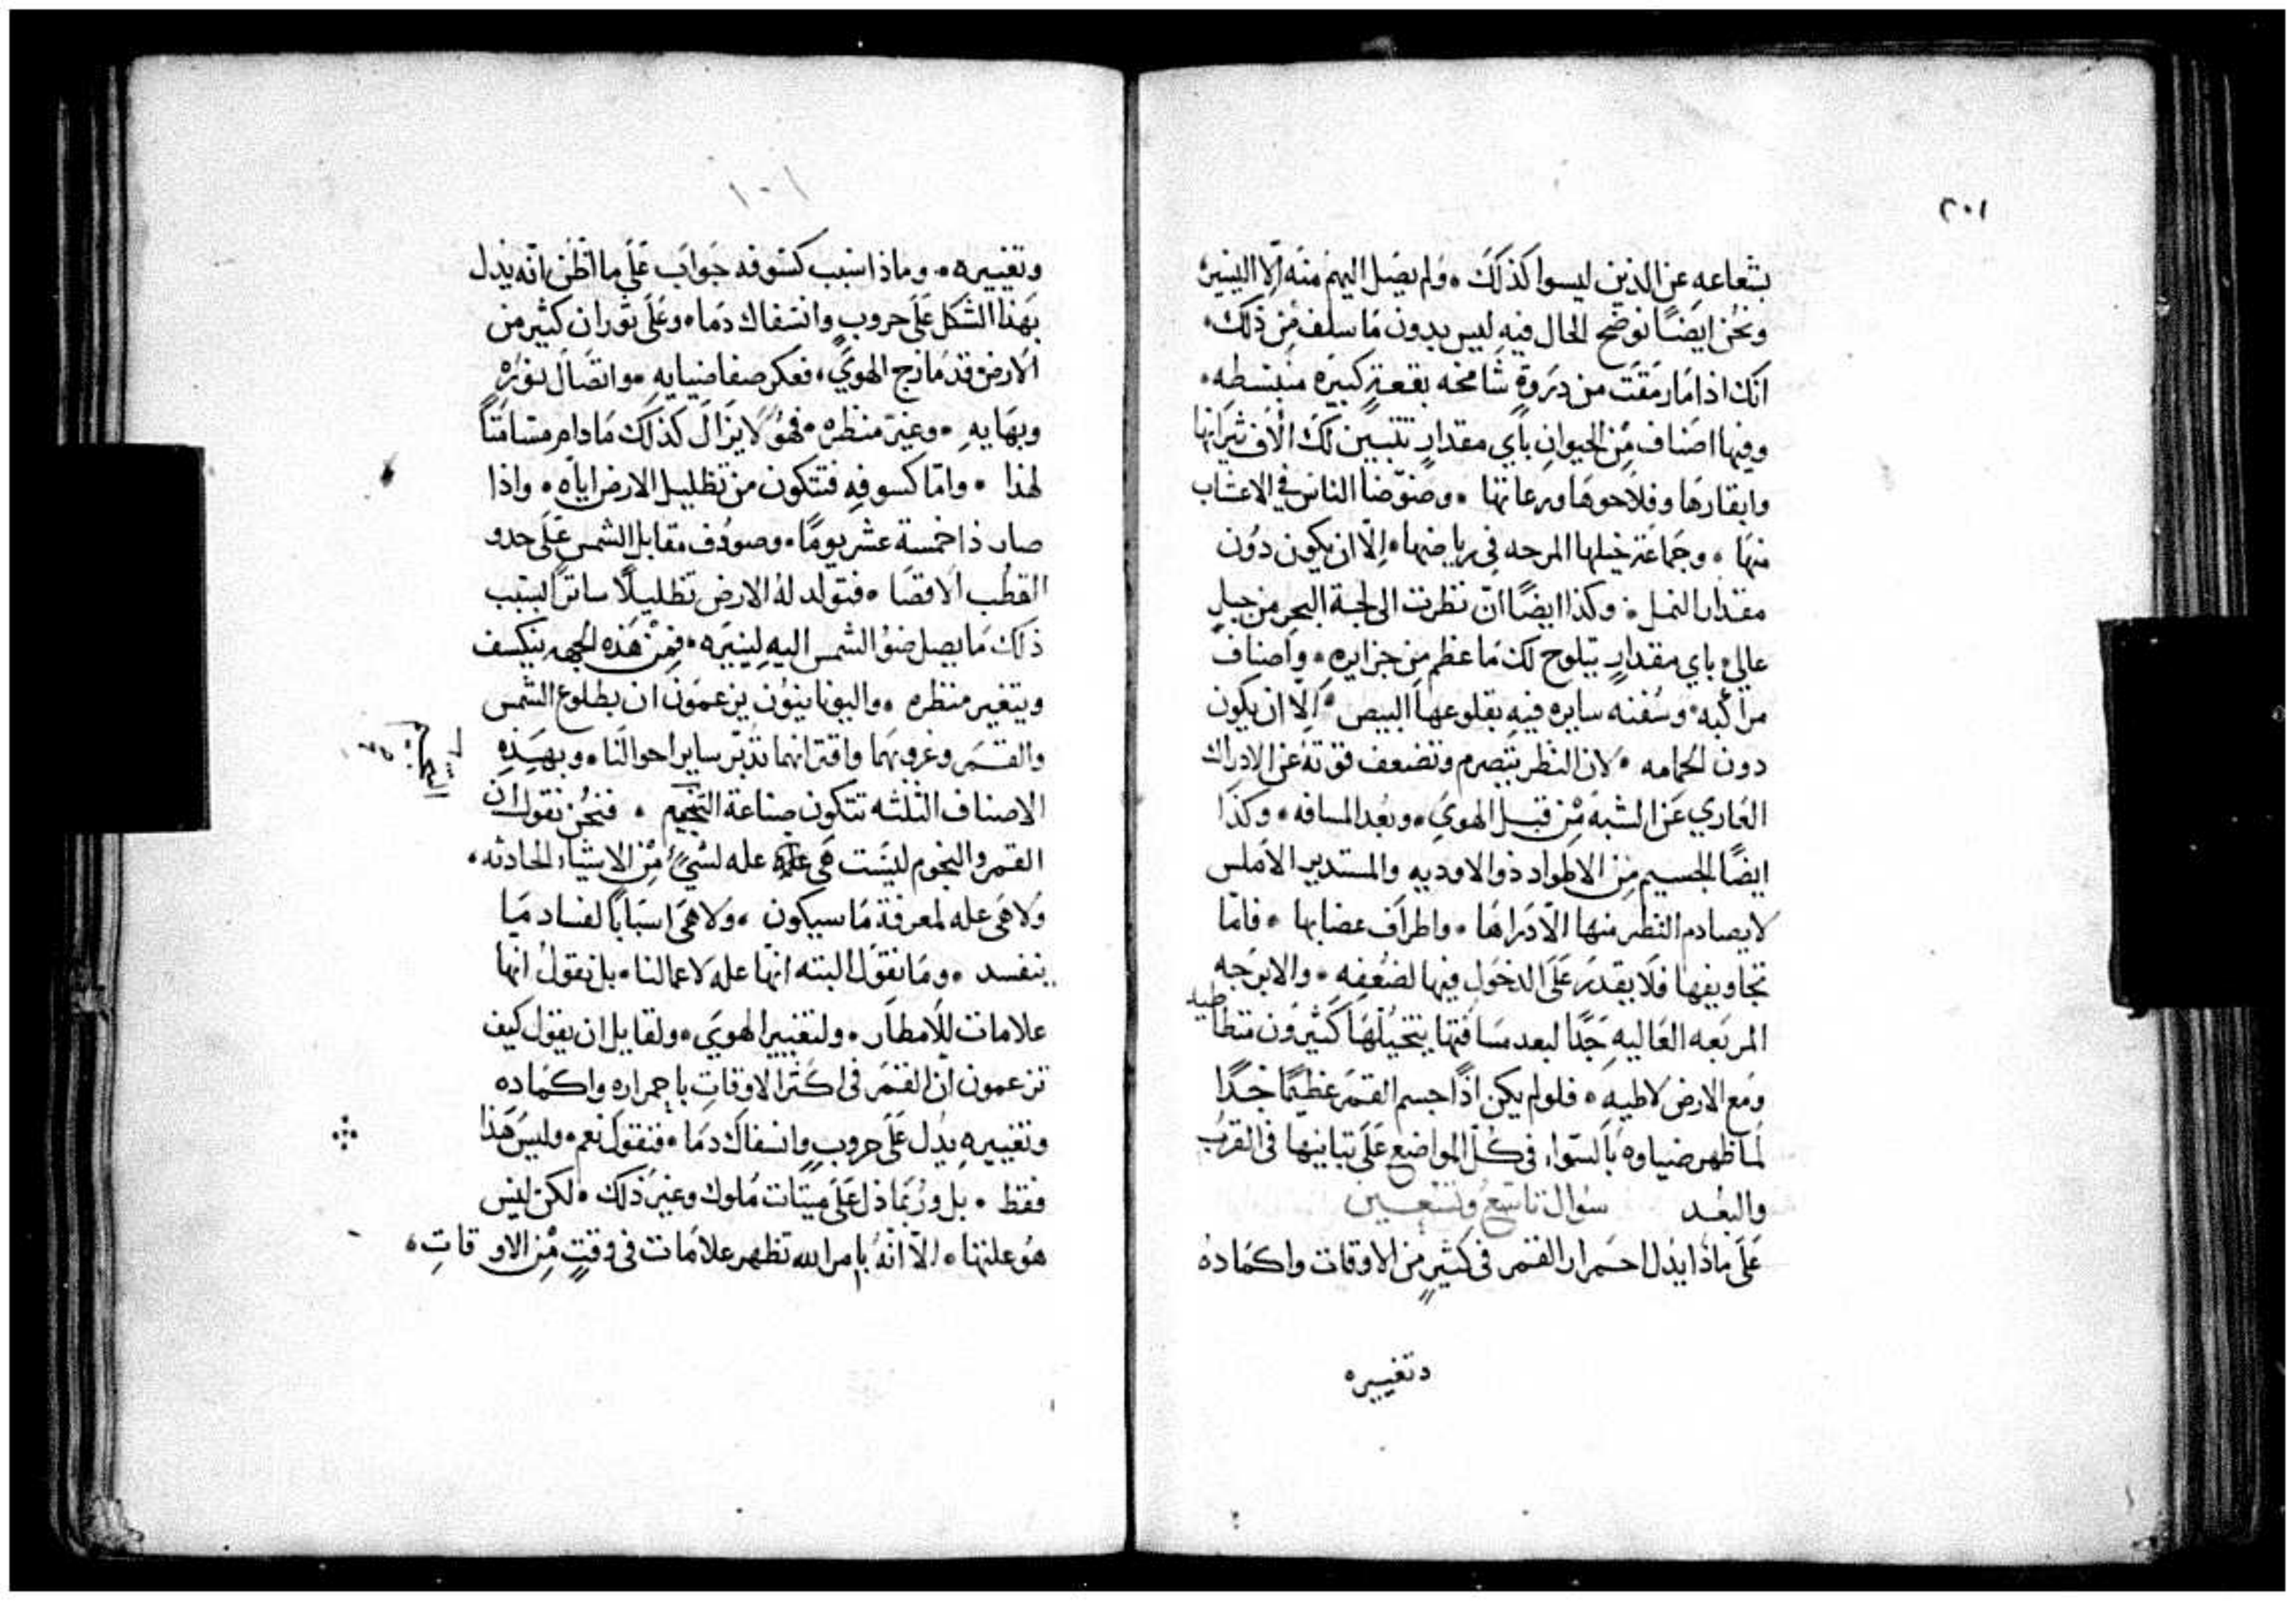 ٢٠١
بشعاعه عن الذين ليسوا كذلك ۰ ولم يصل اليهم منه الا اليسير
ونحن ايضًا نوضح الحال فيه ليس بدون ما سلف من ذلك ۰
انك اذا ما رمقت من دروةٍ شامخه بقعةٍ كبيره منبسطه ۰
وفيها اصناف من الحيوان باي مقدارٍ تتبين لك الاف ثيرانها
وابقارها وفلاحوها ورعاتها ۰ وضوضا الناس في الاعشاب
منها ۰ وجماعة خيلها المرحه في رياضها ۰ الّا ان يكون دون
مقدار النمل ۰ وكذا ايضًا ان نظرت الى لجة البحر من جبلٍ
عالي باي مقدارٍ يتلوح لك ما عظم من جزايره ۰ واصناف
مراكبه وسفنه سايره فيه بقلوعها البيص ۰ الّا ان يكون
دون الحمامه ۰ لان النظر يتصرم وتضعف قوته عن الادراك
العاري عن الشبه من قبل الهوي ۰ وبعد المسافه ۰ وكذا
ايضًا الجسيم من الاطواد ذو الاوديه والمستدير الاملس
لا يصادم النظر منها الّا دراها ۰ واطراف عضابها ۰ فامّا
تجاويفها فلا يقدر على الدخول فيها لضعفه ۰ والابرجه
المربعه العاليه جدًا لبعد مسافتها يتخيلها كثيرون متطاطيه
ومع الارض لاطيه ۰ فلو لم يكن اذًا جسم القمر عظيمًا جدًا
لما ظهر ضياوه بالسوا في كل المواضع على تباينها في القرب
والبعد سوال تاسع وتسعين
على ماذا يدل احمرار القمر في كثيرٍ من الاوقات واكماده
وتغييره
١٠١
وتغييره ۰ وماذا سبب كسوفه جواب على ما اظن انه يدل
بهذا الشكل على حروبٍ وانسفاك دما ۰ وعلى ثوران كثير من
الارض قد مازج الهوي ۰ فعكر صفا ضيايه ۰ واتصال نوره
وبهايه ۰ وغير منظره ۰ فهو لا يزال كذلك ما دام مسامتًا
لهذا ۰ وامّا كسوفه فتكون من تظليل الارض اياه ۰ واذا
صار ذا خمسة عشر يومًا ۰ وصودف مقابل الشمس على حدو
القطب الاقصا ۰ فتولد له الارض تظليلًا ساترًا لسبب
ذلك ما يصل ضو الشمس اليه لينيره ۰ فمن هذه الجهه ينكسف
ويتغير منظره ۰ واليونانيون يزعمون ان بطلوع الشمس
والقمر وغروبهما واقترانهما تدبّر ساير احوالنا ۰ وبهذه
الاصناف الثلثه تتكون صناعة التنجيم ۰ فنحن نقول ان
القمر والنجوم ليست هي عله لشيءٍ من الاشياء الحادثه ۰
ولا هي عله لمعرفة ما سيكون ۰ ولا هي اسبابًا لفساد ما
ينفسد ۰ وما نقول البته انها عله لاعمالنا ۰ بل نقول انها
علامات للامطار ۰ ولتغيير الهوي ۰ ولقايل ان يقول كيف
تزعمون ان القمر في اكثر الاوقات باحمراره واكماده
وتغييره يدل على حروبٍ وانسفاك دما ۰ فنقول نعم ۰ وليس هذا
فقط ۰ بل وربما دل على ميتات ملوك وغير ذلك ۰ لكن ليس
هو علتها ۰ الّا انه بامر الله تظهر علامات في وقتٍ من الاوقاتِ ۰